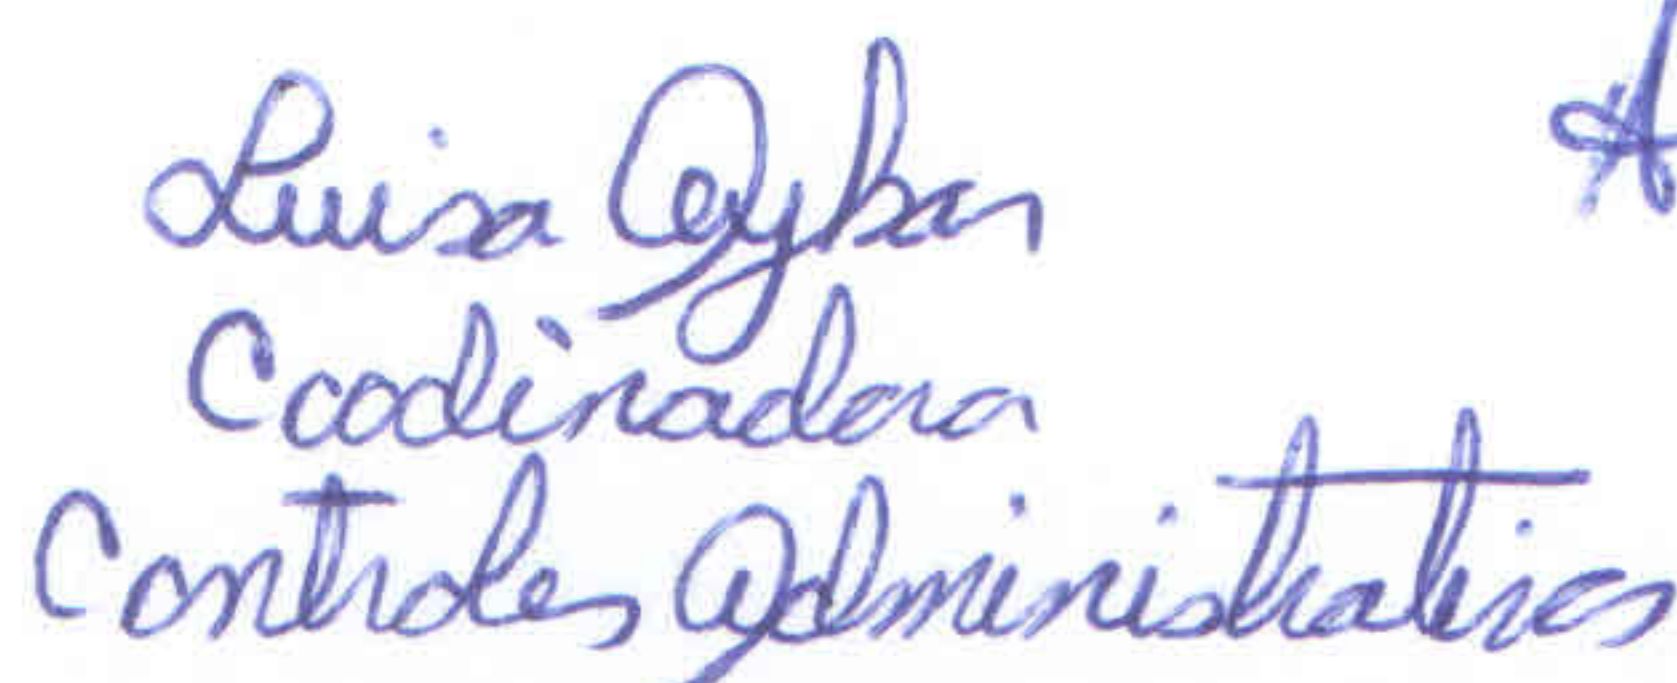 Luisa Aybar
Coodinadora
Controles Administrativos